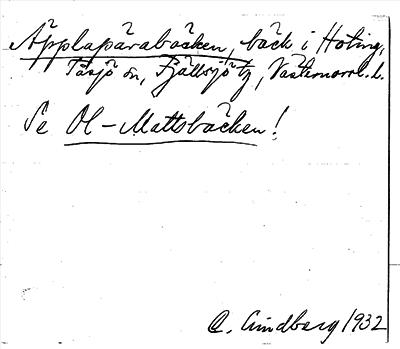 Äpplapärabäcken, bäck i Hoting,
Tåsjö sn, Fjällsjö tg, Västernorrl. l.
Se Ol-Mattsbäcken!
C. Lindberg 1932